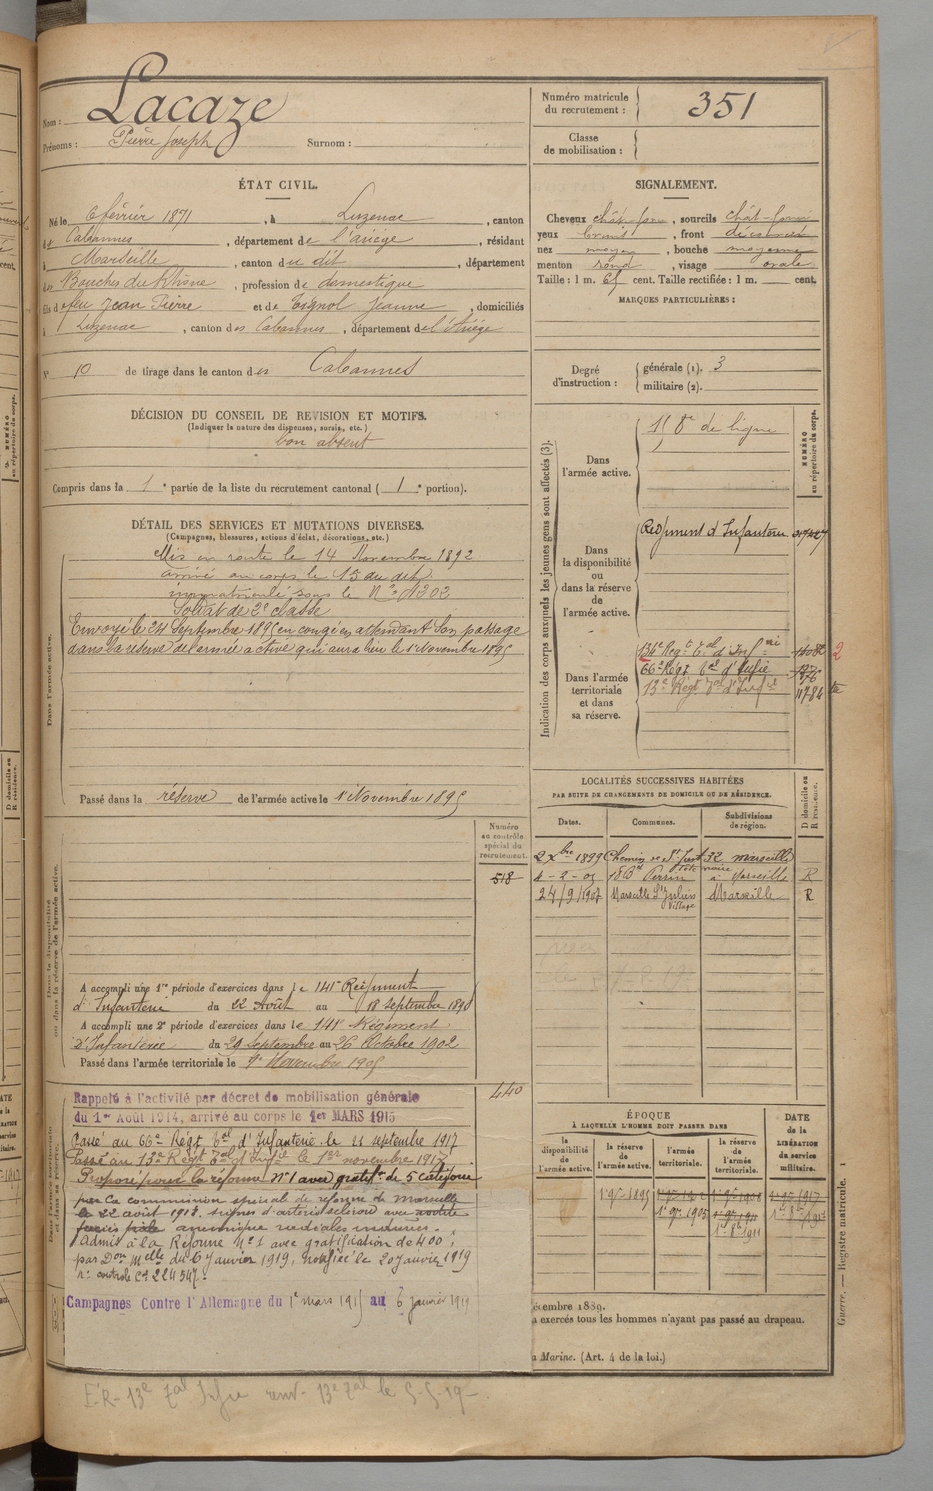 Nom : Lacaze
Prénoms : Pierre Joseph Surnom :
Numéro matricule du recrutement : 351
Classe de mobilisation :
ÉTAT CIVIL.
Né le 6 février 1871, à Luzenac, canton
de Cabannes, département de l'Ariège, résidant
à Marseille, canton du dit, département
des Bouches du Rhône, profession de domestique
fils de feu Jean Pierre et de Esgnol Jeanne, domiciliés
à Luzenac, canton des Cabannes, département de l'Ariège
N° 10 de tirage dans le canton des Cabannes
SIGNALEMENT.
Cheveux chât-fon, sourcils chât-fon
yeux bruns, front découvert
nez moyen, bouche moyenne
menton rond, visage ovale
Taille : 1 m. 65 cent. Taille rectifiée : 1 m. cent.
MARQUES PARTICULIÈRES :
Degré d'instruction : générale (1). 3
militaire (2).
DÉCISION DU CONSEIL DE REVISION ET MOTIFS.
(Indiquer la nature des dispenses, sursis, etc.)
bon absent
Compris dans la 1e partie de la liste du recrutement cantonal (1e portion).
DÉTAIL DES SERVICES ET MUTATIONS DIVERSES.
(Campagnes, blessures, actions d'éclat, décorations, etc.)
Dans l'armée active.
Mis en route le 14 Novembre 1892
arrivé au corps le 15 du dit.
immatriculé sous le N°
Soldat de 2e classe
Envoyé le 24 Septembre 1895 en congé en attendant son passage
dans la réserve de l'armée active qui aura lieu le 1er Novembre 1895
Passé dans la réserve de l'armée active le 1er Novembre 1895
Numéro au contrôle spécial du recrutement.
518
Dans la disponibilité ou dans la réserve de l'armée active.
A accompli une 1re période d'exercices dans le 141e Régiment
d'Infanterie du 22 Août au 18 septembre 1898
A accompli une 2e période d'exercices dans le 141e Régiment
d'Infanterie du 29 septembre au 26 Octobre 1902
Passé dans l'armée territoriale le 1er Novembre 1905
440
Rappelé à l'activité par décret de mobilisation générale
du 1er Août 1914, arrivé au corps le 1er MARS 1915
Passé au 66e Régt Tal d'Infanterie le 21 septembre 1917
Passé au 13e Régt Tal d'Infie le 1er novembre 1917
Proposé pour la réforme n°1 avec gratifn de 5 catégorie
par la commission spéciale de réforme de Marseille
le 22 août 1918. signes d'artério sclérose avec aortite
faciès pâle anémique radiales indurées.
Admis à la Réforme N° 1 avec gratification de 400f
par Don Melle du 6 Janvier 1919, notifiée le 20 janvier 1919
n° contrôle
Campagnes Contre l'Allemagne du 1er mars 1915 au 6 janvier 1919
E.R- 13e Tal Infie renv. 13e Tal le 5-5-19-
Indication des corps auxquels les jeunes gens sont affectés (3).
NUMÉRO au répertoire du corps.
Dans l'armée active.
158e de ligne
Dans la disponibilité ou dans la réserve de l'armée active.
Régiment d'Infanterie
Dans l'armée territoriale et dans sa réserve.
134e Regt Tal d'Infrie 2
66e Régt Tal d'Infie
13e Régt Tal d'Infie 11784
LOCALITÉS SUCCESSIVES HABITÉES
PAR SUITE DE CHANGEMENTS DE DOMICILE OU DE RÉSIDENCE.
Dates. Communes. Subdivisions de région. D domicile ou R résidence.
2 Xbre 1899 Chemin de St Just 32 Marseille
4-2-05 18 Bd Perrin à Marseille R
24/9/1907 Marseille St Julien Village Marseille R
ÉPOQUE
À LAQUELLE L'HOMME DOIT PASSER DANS
la disponibilité de l'armée active. la réserve de l'armée active. l'armée territoriale. la réserve de l'armée territoriale.
DATE de la LIBÉRATION du service militaire.
1er 9re 1895
1er 9re 1905
1er 8bre 1911
écembre 1889.
a exercés tous les hommes n'ayant pas passé au drapeau.
a Marine. (Art. 4 de la loi.)
Guerre. — Registre matricule. 1